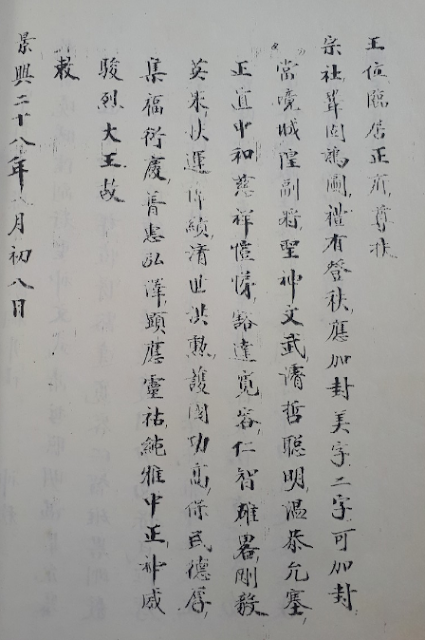 王位臨居正府尊扶
宗社鞏固鴻圖禮有登秩應加封美字二字可加封
當境城隍副將聖神文武濬哲聰明溫恭允塞
正道中和慈祥愷悌豁達寬容仁智雄畧剛毅
英果扶運 績清世洪勳護國功高保民德厚
集福衍慶普惠弘澤顯應靈祐純雅中正神威
駿烈大王故
敕
景興二十八年 月初八日